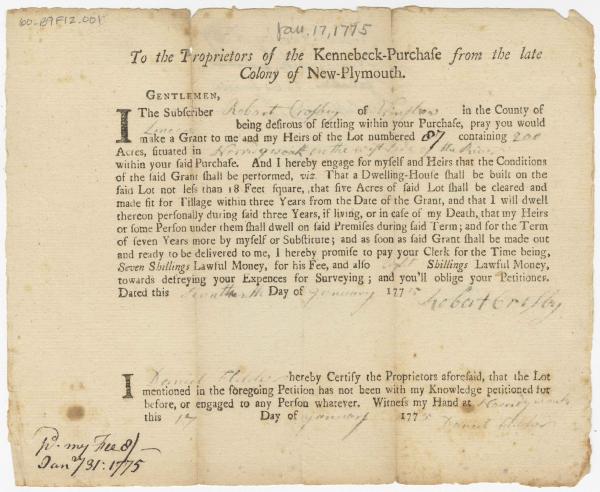 60-B9F12.001
Jan. 17, 1775
To the Proprietors of the Kennebeck-Purchaſe from the late
Colony of New-Plymouth.
GENTLEMEN,
I The Subſcriber Robert Croſby of Winſlow in the County of
Lincoln being deſirous of ſettling within your Purchaſe, pray you would
make a Grant to me and my Heirs of the Lot numbered 87 containing 200
Acres, ſituated in on the weſt ſide of the River
within your ſaid Purchaſe. And I hereby engage for myſelf and Heirs that the Conditions
of the ſaid Grant ſhall be performed, viz. That a Dwelling-Houſe ſhall be built on the
ſaid Lot not leſs than 18 Feet ſquare, that five Acres of ſaid Lot ſhall be cleared and
made fit for Tillage within three Years from the Date of the Grant, and that I will dwell
thereon perſonally during ſaid three Years, if living, or in caſe of my Death, that my Heirs
or ſome Perſon under them ſhall dwell on ſaid Premiſes during ſaid Term; and for the Term
of ſeven Years more by myſelf or Subſtitute; and as ſoon as ſaid Grant ſhall be made out
and ready to be delivered to me, I hereby promiſe to pay your Clerk for the Time being,
Seven Shillings Lawful Money, for his Fee, and alſo Shillings Lawful Money,
towards defreying your Expences for Surveying; and you'll oblige your Petitioner.
Dated this Day of January 1775 Robert Croſby
I Daniel hereby Certify the Proprietors aforeſaid, that the Lot
mentioned in the foregoing Petition has not been with my Knowledge petitioned for
before, or engaged to any Perſon whatever. Witneſs my Hand at
this 17 Day of January 1775 Daniel
pd. my Fee 8/-
Jany 31: 1775